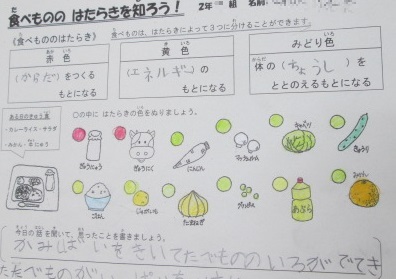 食べものの はたらきを知ろう！
2年 組 名前
《食べもののはたらき》
食べものは、はたらきによって3つに分けることができます。
赤色
(からだ)をつくる
もとになる
黄色
(エネルギー)の
もとになる
みどり色
体の(ちょうし)を
ととのえるもとになる
ある日のきゅう食
・カレーライス・サラダ
・みかん・牛にゅう
○の中に はたらきの色をぬりましょう。
ぎゅうにゅう ぎゅうにく にんじん マッシュルーム キャベツ きゅうり
ごはん じゃがいも たまねぎ あぶら みかん
今日の話を聞いて、思ったことを書きましょう。
かみしばいをきいてたべもののいろがでてき